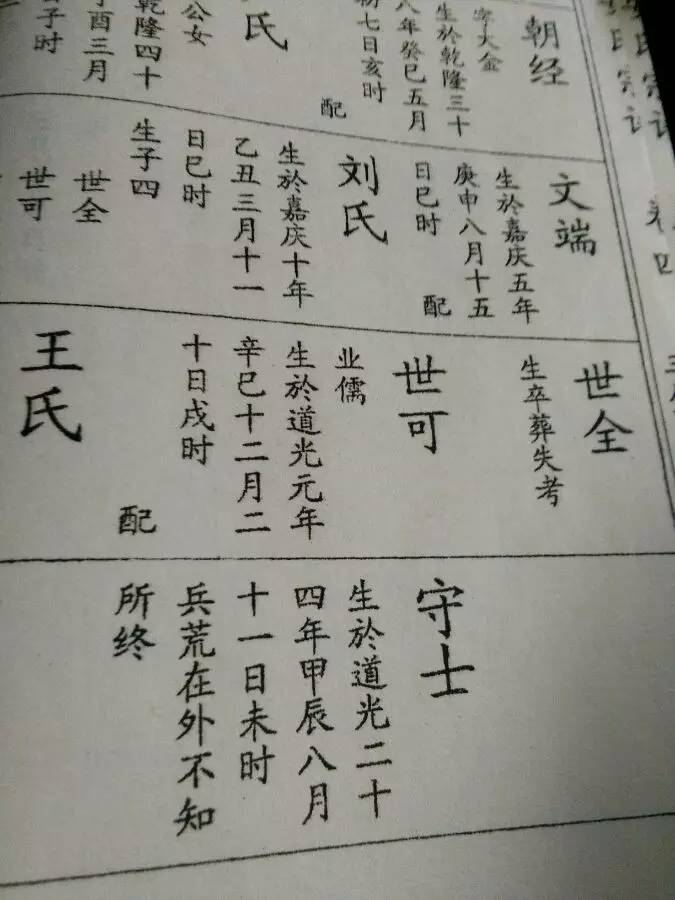 朝经
字大金
生於乾隆三十
八年癸巳五月
初七日亥时
配
氏
公女
乾隆四十
丁酉三月
子时
文端
生於嘉庆五年
庚申八月十五
日巳时
配
刘氏
生於嘉庆十年
乙丑三月十一
日巳时
生子四
世全
世可
世全
生卒葬失考
世可
业儒
生於道光元年
辛巳十二月二
十日戌时
配
王氏
守士
生於道光二十
四年甲辰八月
十一日未时
兵荒在外不知
所终